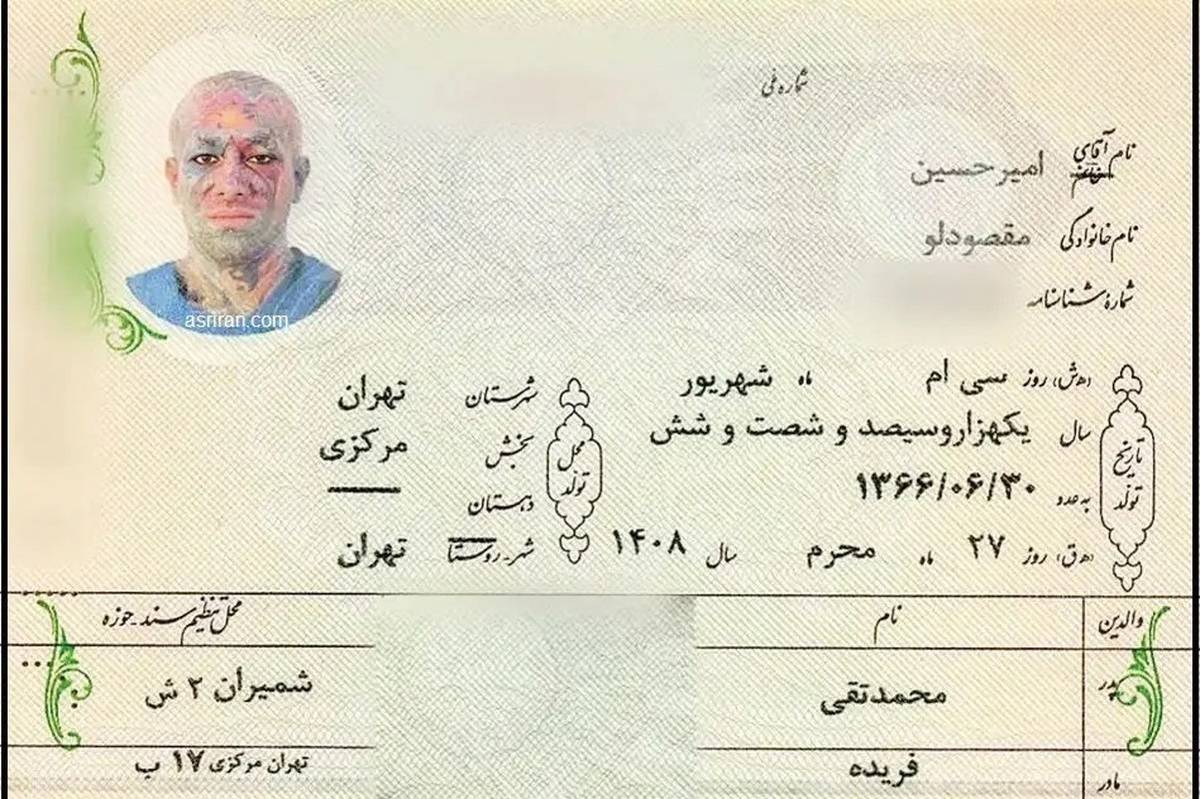 شماره ملی
نام آقای خانم امیرحسین
نام خانوادگی مقصودلو
شماره شناسنامه
asriran.com
تاریخ تولد
(ه.ش) روز سی ام ماه شهریور
سال یکهزاروسیصد و شصت و شش
به عدد ۱۳۶۶/۰۶/۳۰
(ه.ق) روز ۲۷ ماه محرم سال ۱۴۰۸
محل تولد
شهرستان تهران
بخش مرکزی
دهستان
شهر-روستا تهران
والدین نام محل تنظیم سند-حوزه
پدر محمدتقی شمیران ۲ ش
مادر فریده تهران مرکزی ۱۷ ب